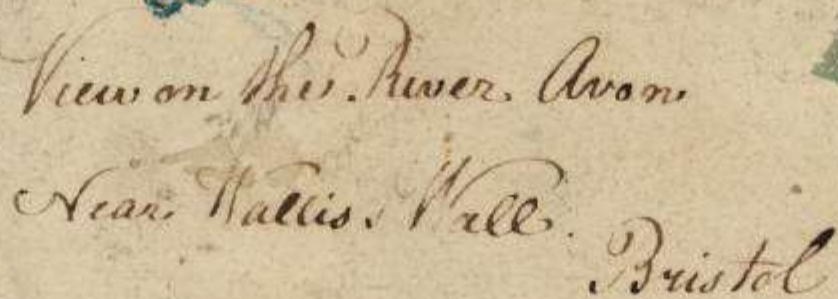 View on the River Avon
Near Wallis, Wall.
Bristol